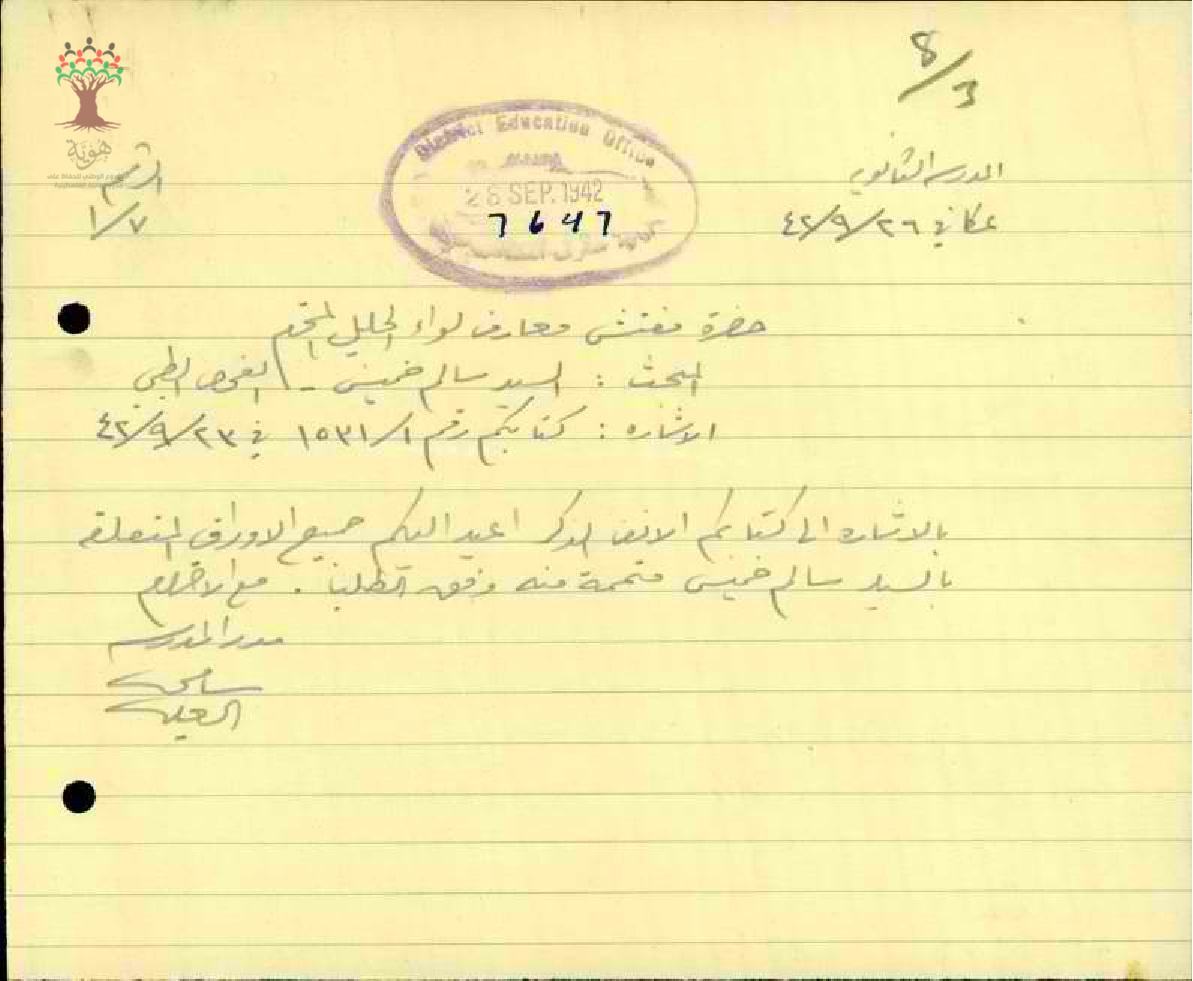 8/3
المدرسة الثانوية
عكا في ٤٢/٩/٢٦
الرقم
١/٧
District Education Office
26 SEP. 1942
7647
هوية
حضرة مفتش معارف لواء الجليل المحترم
المبحث : السيد سالم خميس - الفحص الطبي
الاشاره : كتابكم رقم ١٥٣١/١ في ٤٢/٩/٢٣
بالاشاره الى كتابكم الانف الذكر اعيد اليكم جميع الاوراق المتعلقه
بالسيد سالم خميس متممة منه وفق الطلب . مع الاحترام
مدير المدرسه
سامي
العيد